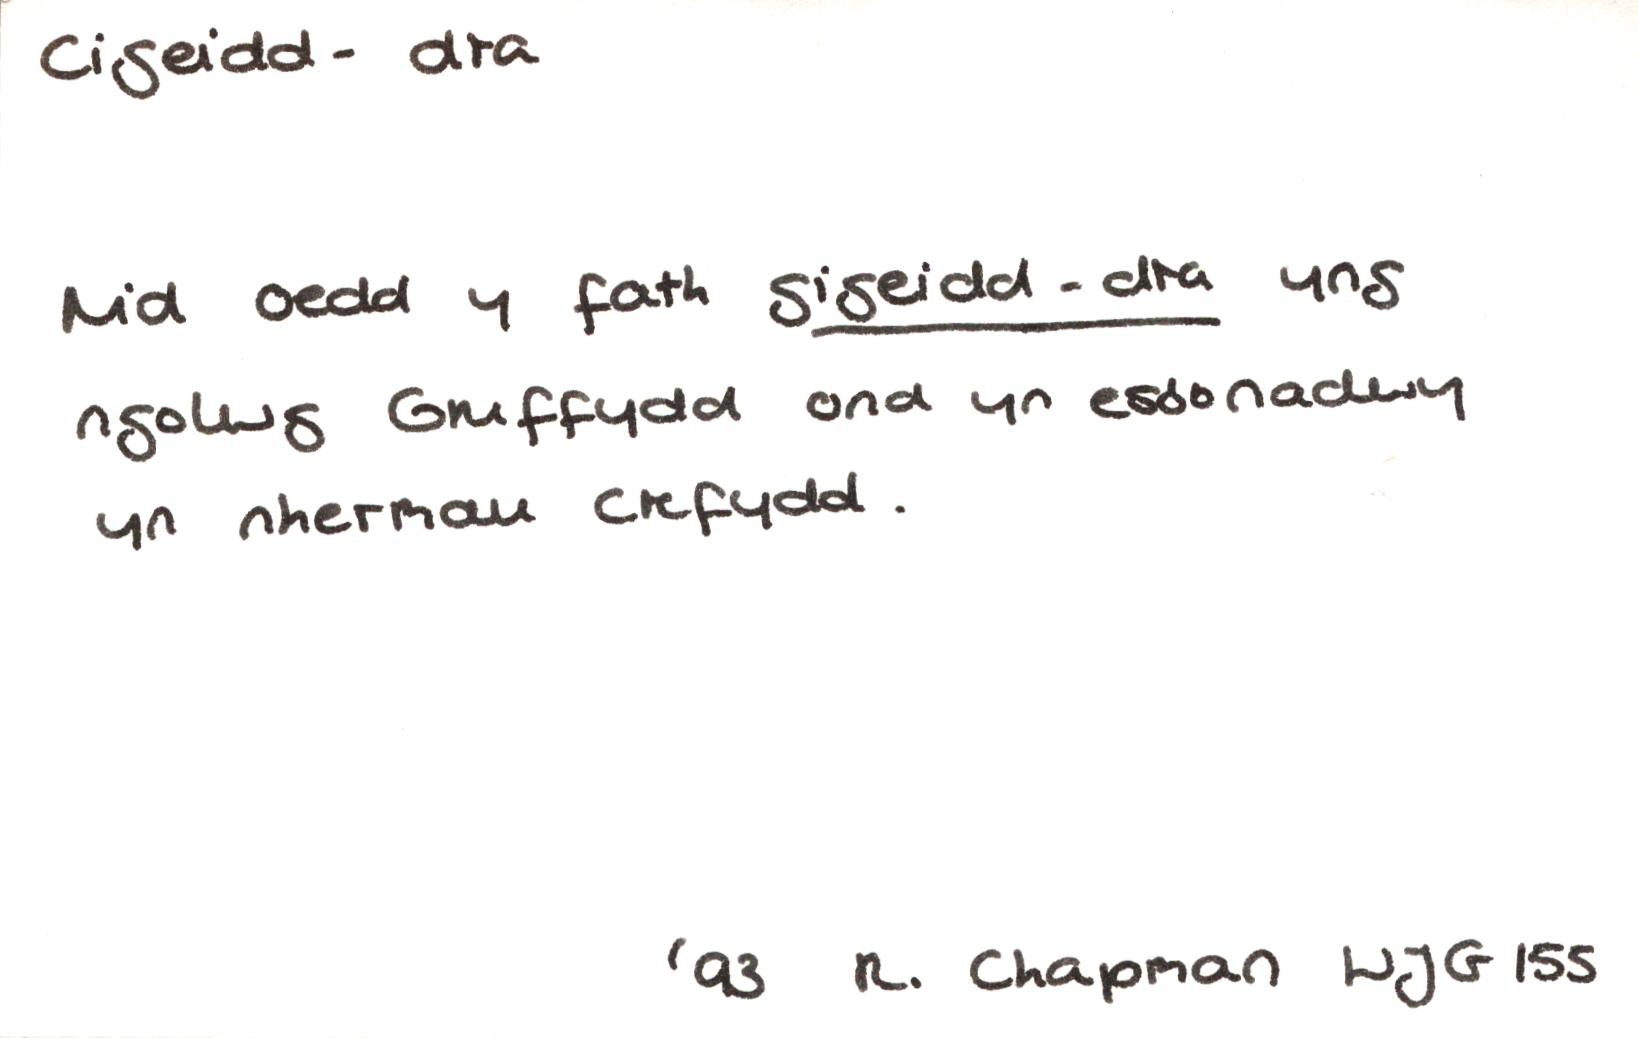 Cigeidd-dra
Nid oedd y fath gigeidd-dra yng
ngolwg Gruffydd ond yn esbonadwy
yn nhermau Crefydd.
'93 R. Chapman WJG 155